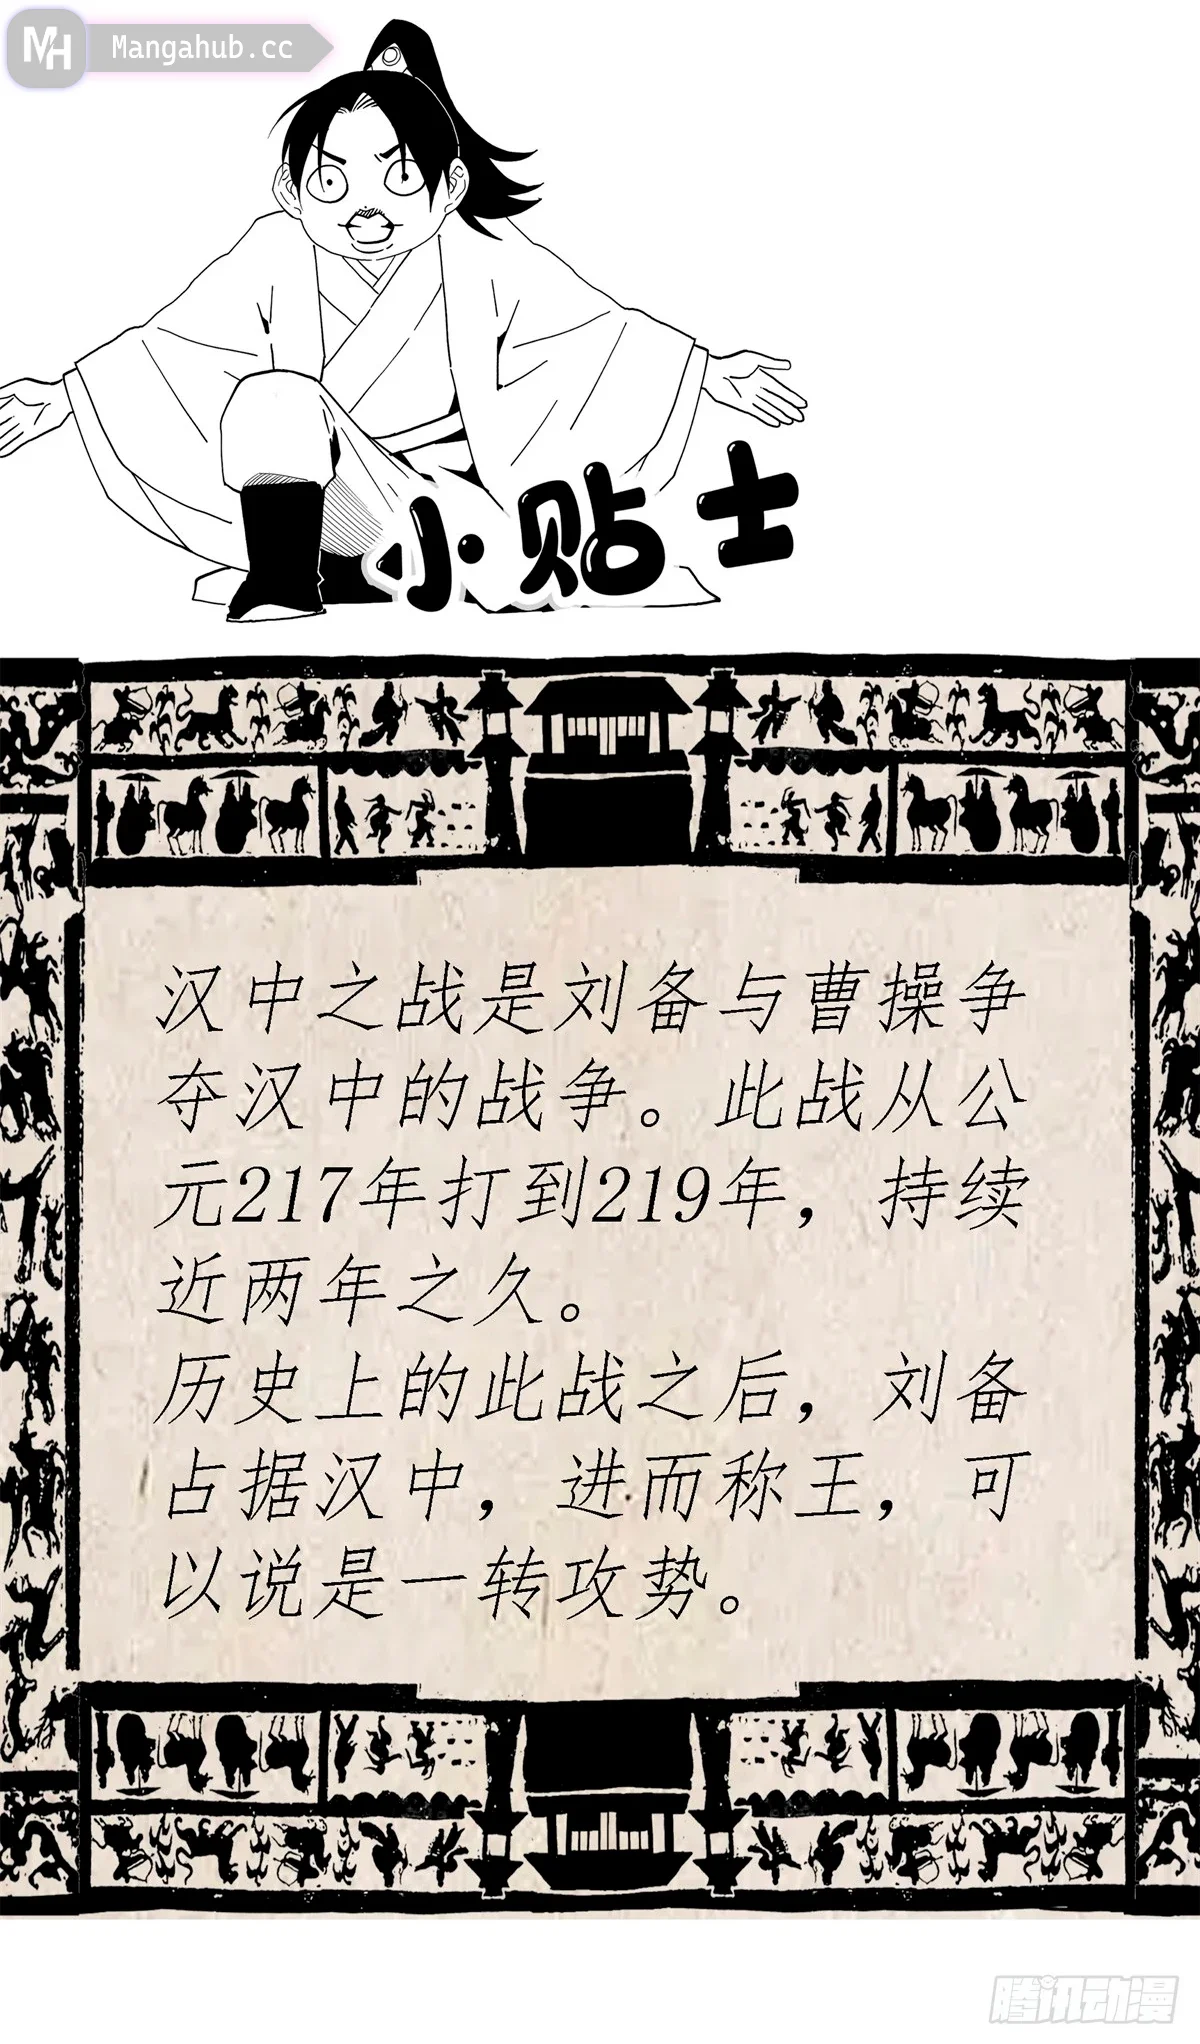 MH Mangahub.cc
小贴士
汉中之战是刘备与曹操争
夺汉中的战争。此战从公
元217年打到219年，持续
近两年之久。
历史上的此战之后，刘备
占据汉中，进而称王，可
以说是一转攻势。
腾讯动漫